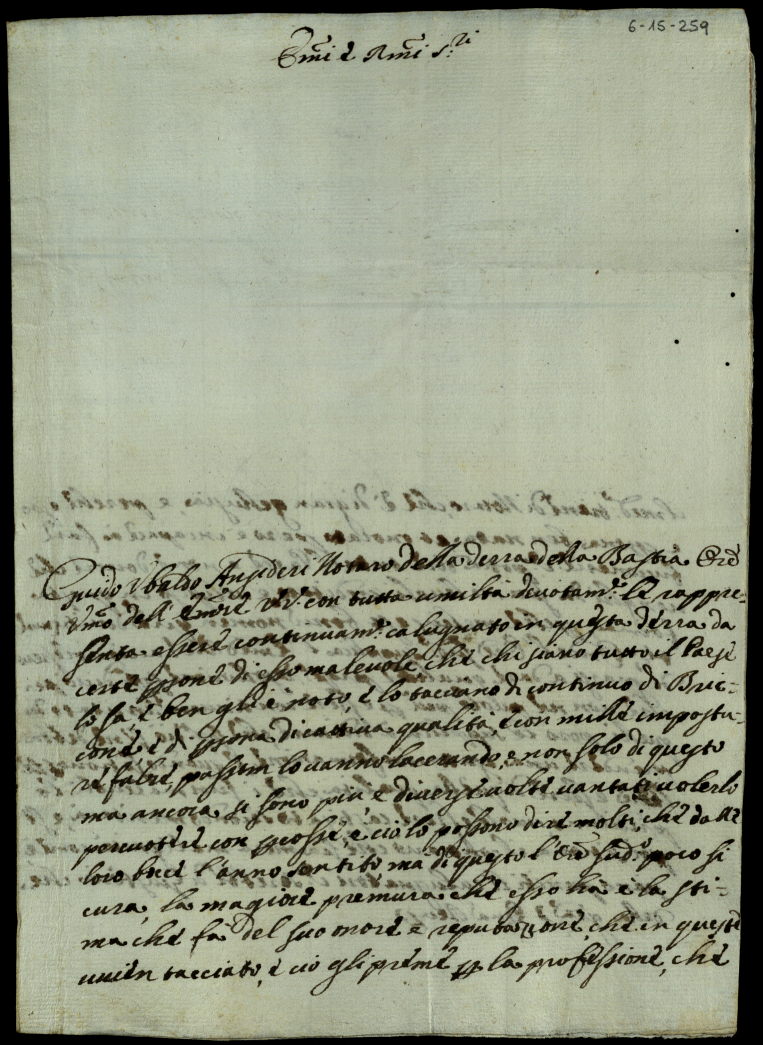 6-15-259
Emi e Rmi S.ri
Guido Ubaldo Ansideri Notaro della Terra della Bastia Ore
Umo dell' Emze VV. con tutta umiltà devotam.te Le rappre-
senta essere continuam.te calugnato in questa Terra da
certe psone di esso malevole che chi siano tutto il Paese
lo sà, e ben gli è noto, e lo tacciano di continuo di Bric-
cone e di psona di cattiva qualità, e con mille impostu-
re false, passim lo vanno lacerando, e non solo di questo
ma ancora si sono più, e diverse volte vantati volerlo
percuotere con pcosse, e ciò lo possono dire molti, che dalle
loro bocc l'anno sentito, ma di questo l'Ore sud.o poco si
cura, la magiore premura che esso hà e la sti-
ma che fa del suo onore e reputazione, che in queste
vvien tacciato, e ciò gli preme p la professione, che